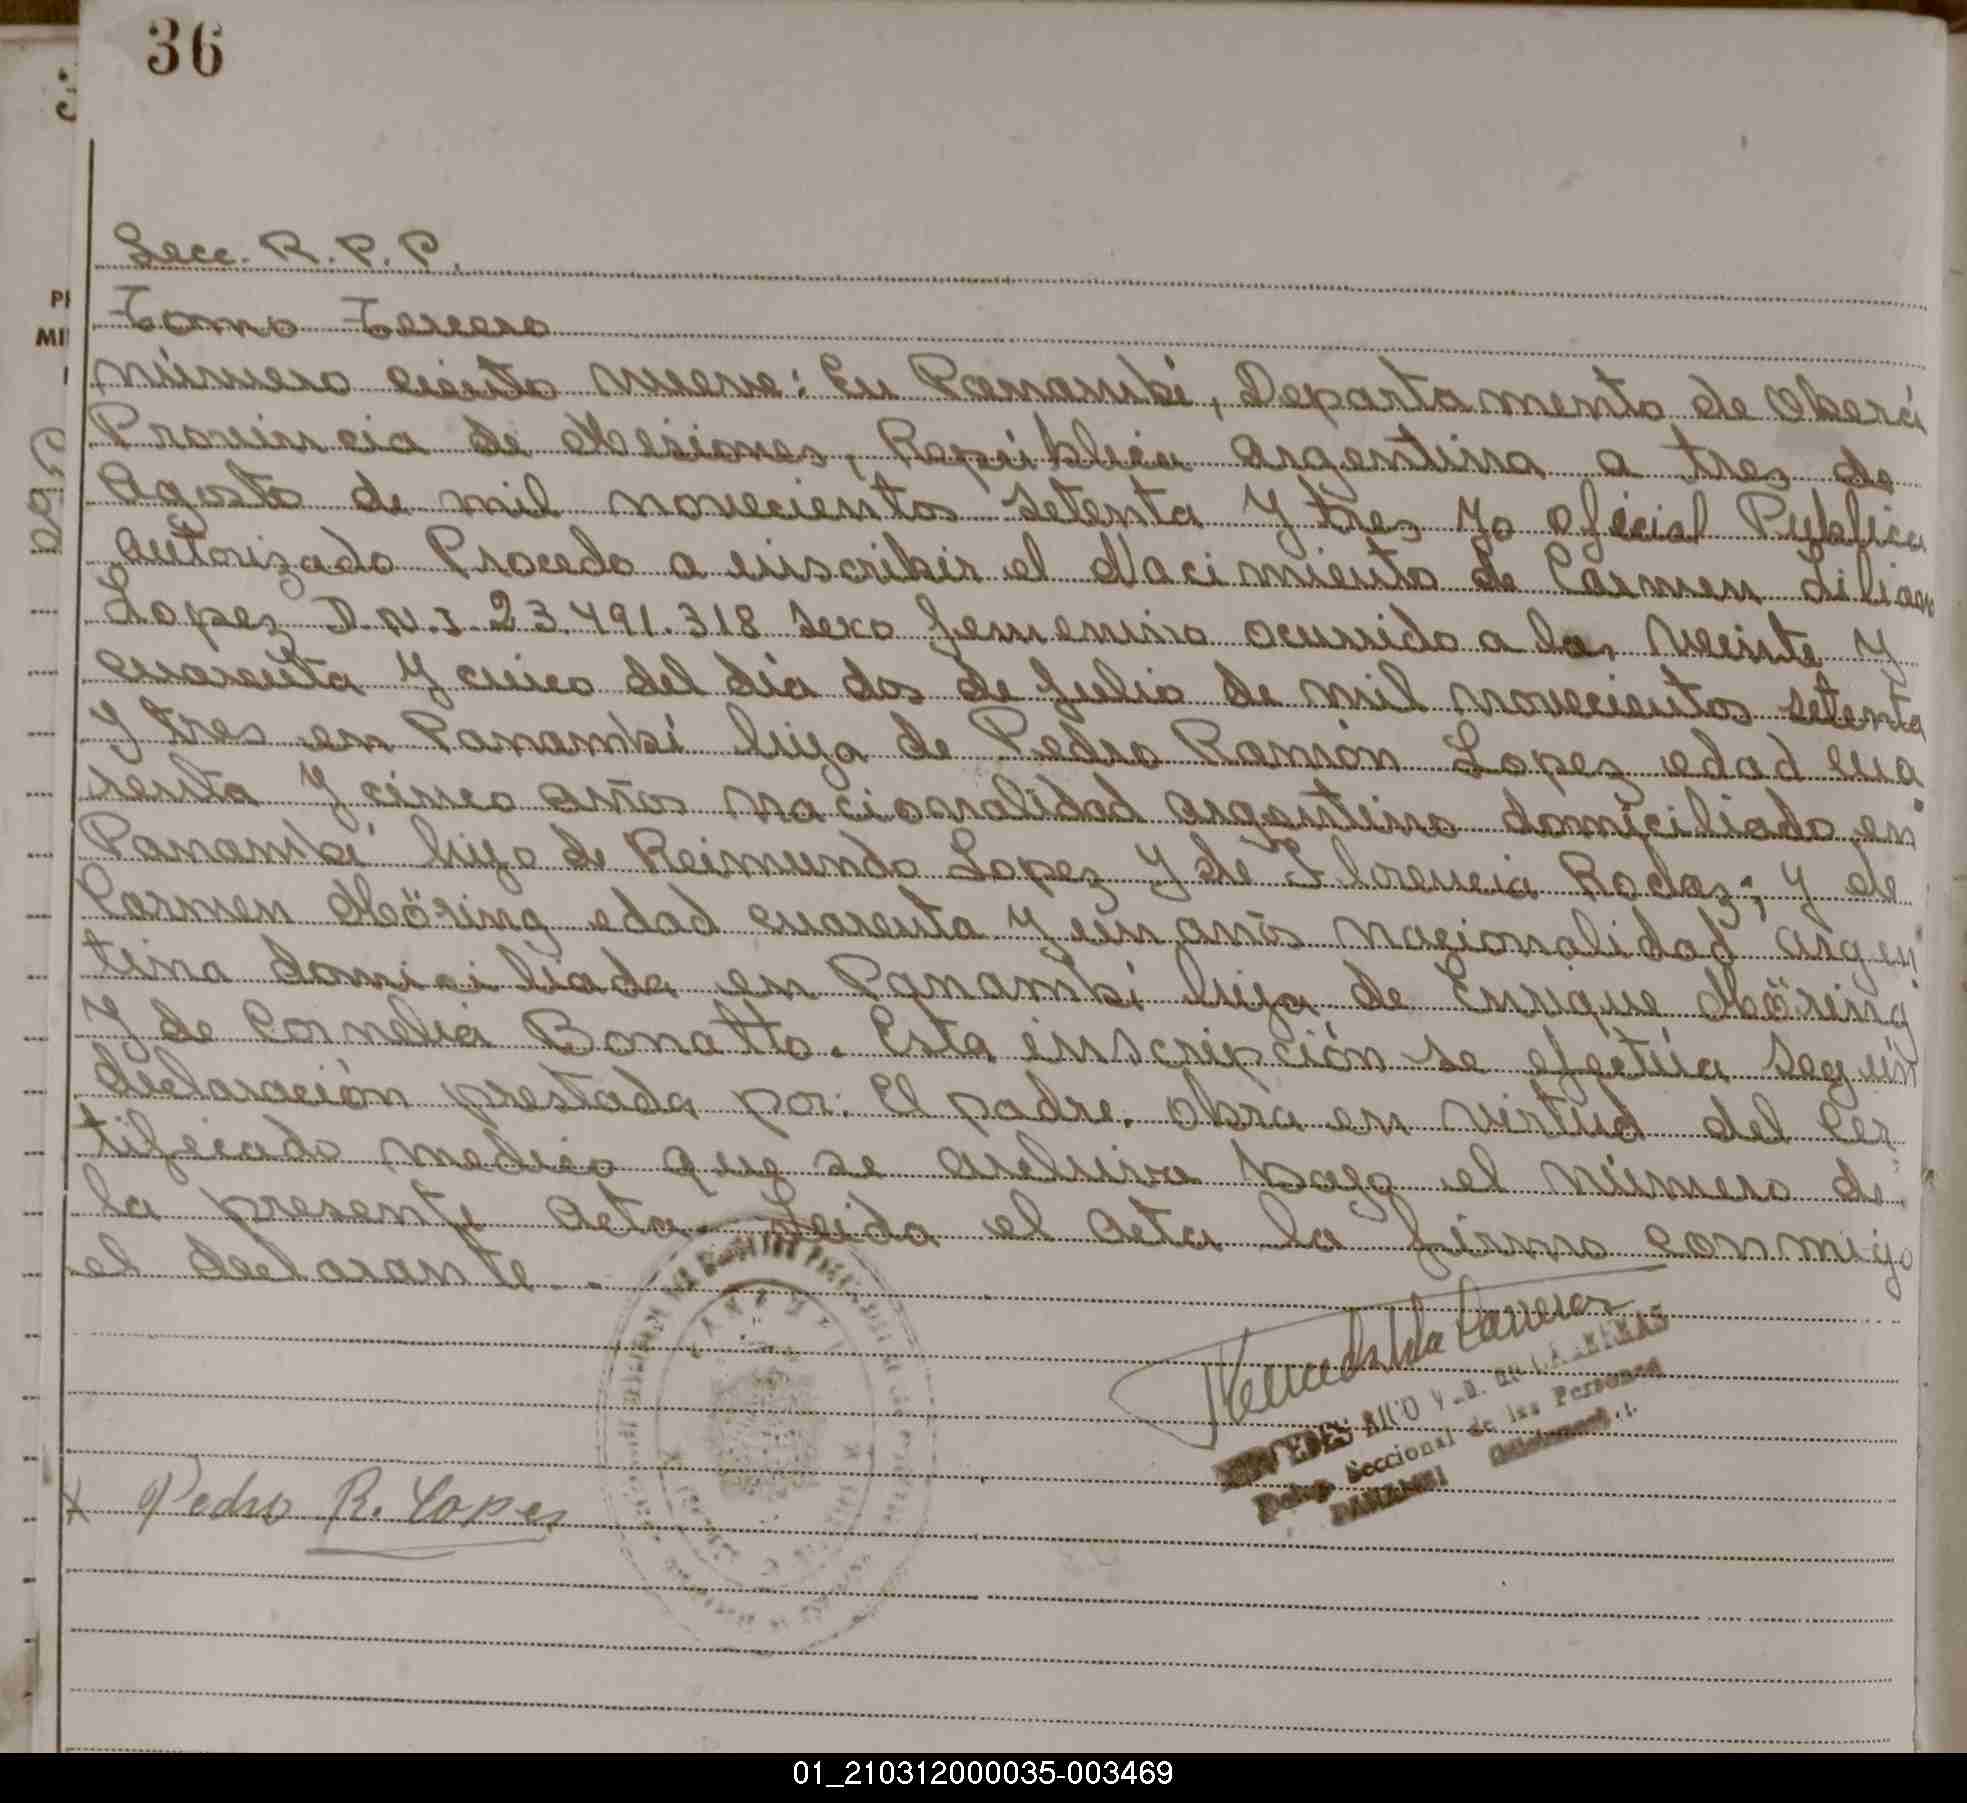 36
Secc. R.P.P.
Tomo Tercero
número ciento nueve: En Panambí, Departamento de Oberá
Provincia de Misiones, República argentina a tres de
Agosto de mil novecientos setenta y tres yo oficial Publica
autorizado Procedo a inscribir el Nacimiento de Carmen Lilian
Lopez D.N.I. 23.491.318 sexo femenino ocurrido a las veinte y
cuarenta y cinco del día dos de julio de mil novecientos setenta
y tres en Panambí hija de Pedro Ramón Lopez edad cua
renta y cinco años nacionalidad argentino domiciliado en
Panambí hijo de Reimundo Lopez y de Florencia Rodaz; y de
Carmen Höring edad cuarenta y un años nacionalidad argen
tina domiciliada en Panambí hija de Enrique Höring
y de Cornelia Bonatto. Esta inscripción se efectúa según
declaración prestada por: El padre. obra en virtud del Cer
tificado medico que se archiva bajo el número de
la presente acta. Leida el acta la firma conmigo
el declarante.
Seccional de las Personas
PANAMBI
x Pedro R. Lopez
01_210312000035-003469